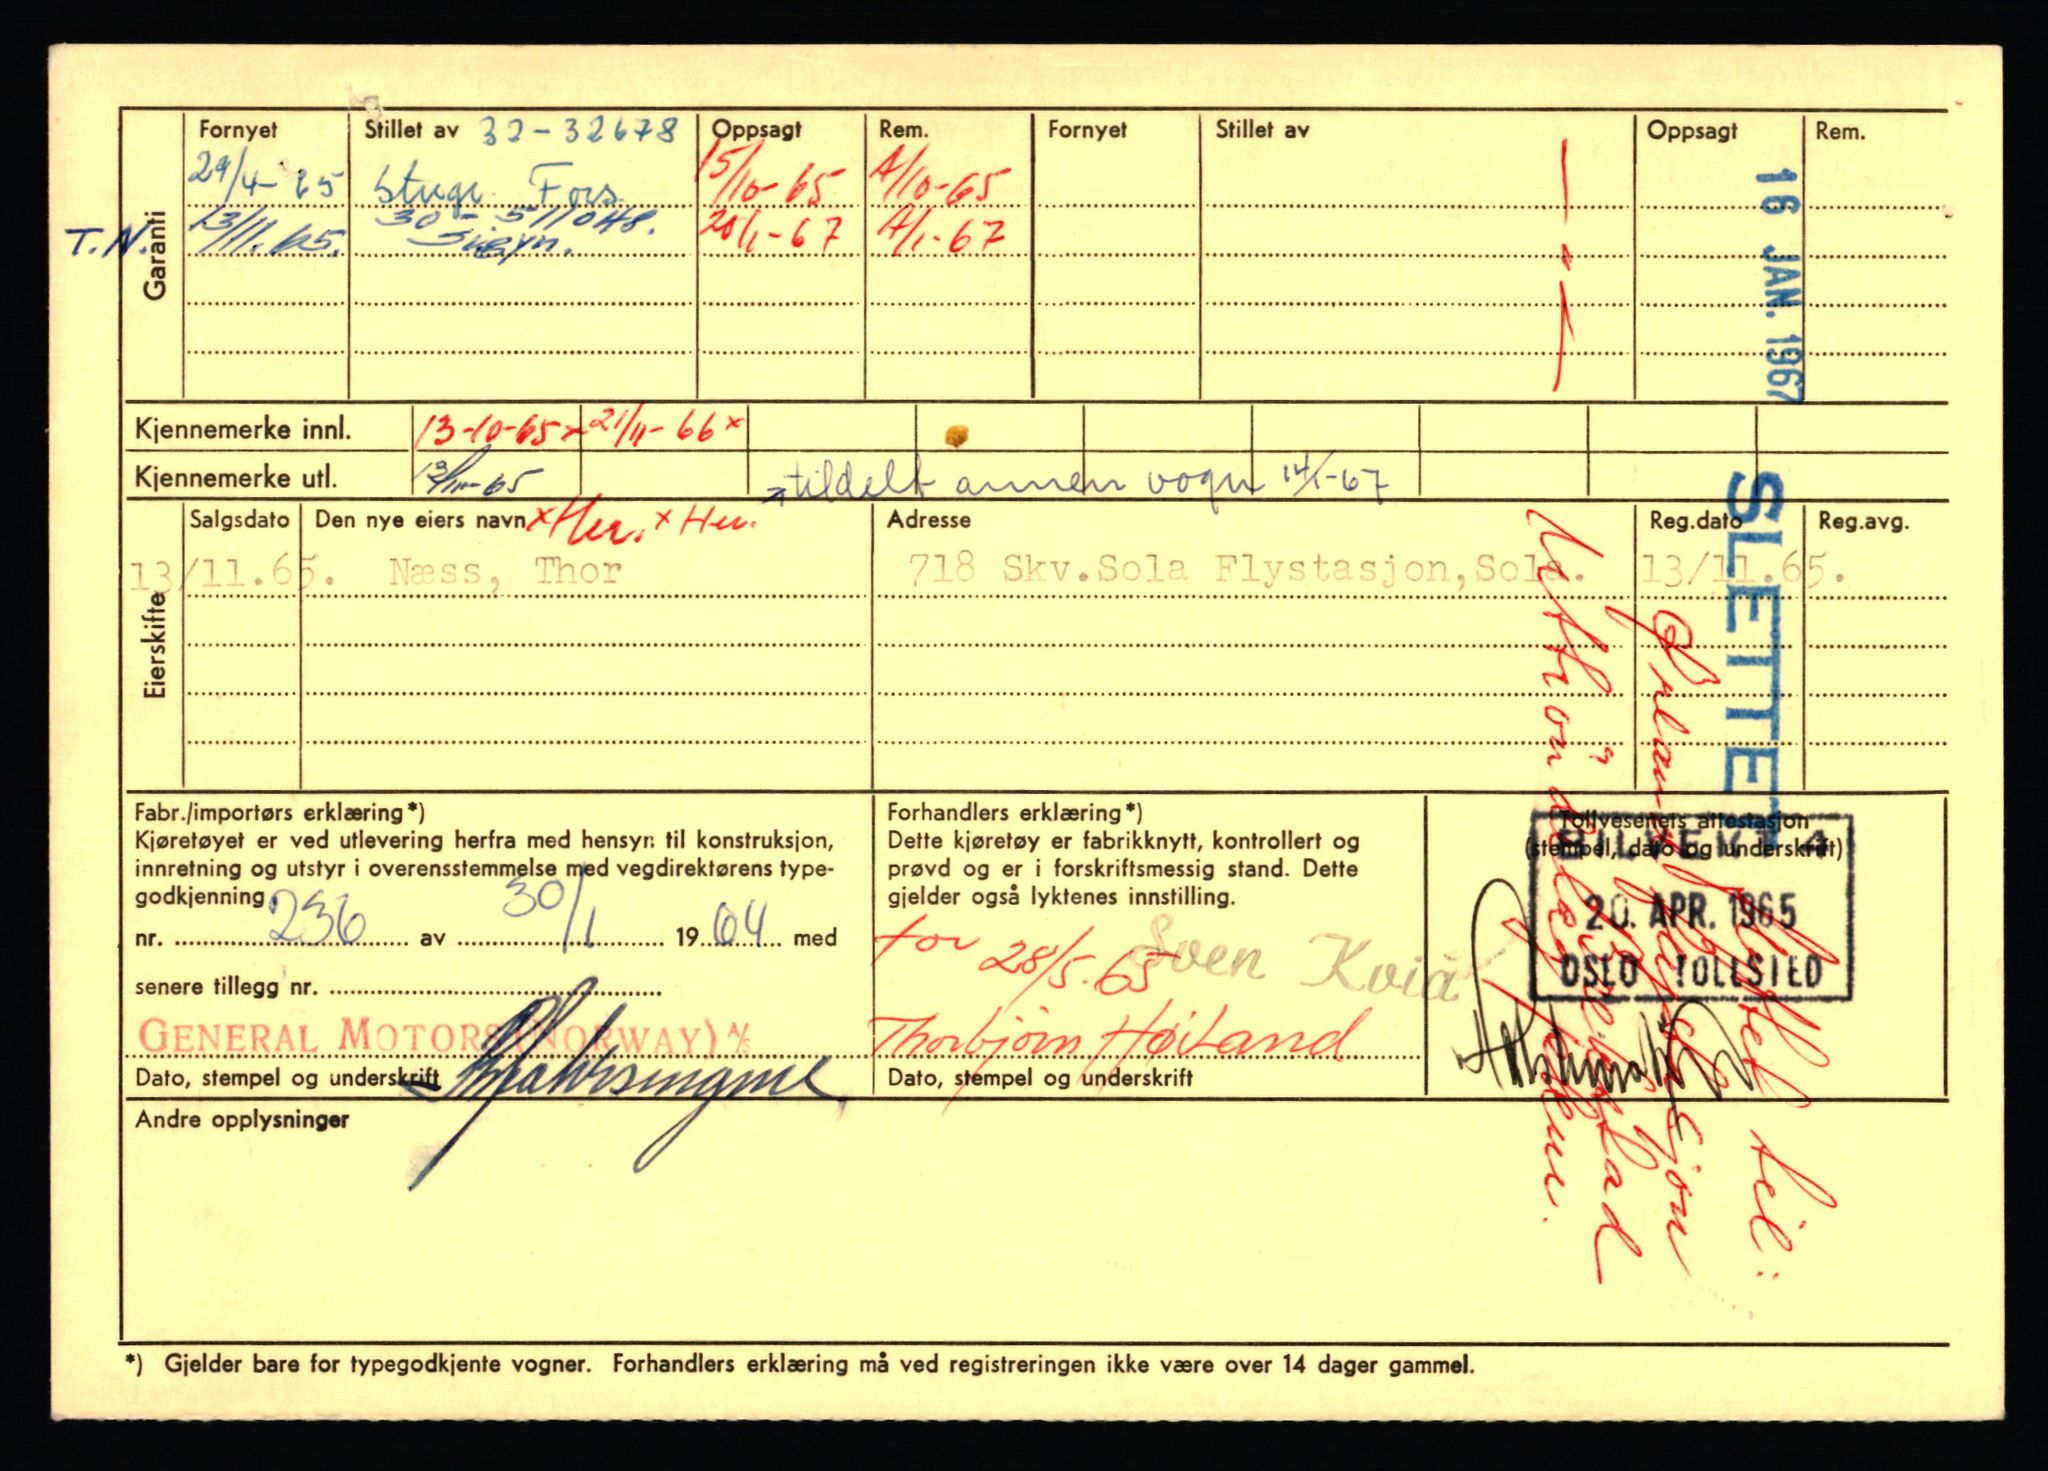 Garanti
Fornyet Stillet av 32-32678 Oppsagt Rem. Fornyet Stillet av Oppsagt Rem.
29/4-65 Stugr. Fors. 15/10-65 A/10-65
T.N. 13/11.65. 30-511048. Sigyn. 20/1-67 A/1-67
16 JAN. 1967
Kjennemerke innl. 13-10-65x 21/11-66x
Kjennemerke utl. 13/11-65 tildelt annen vogn 14/1-67
SLETTET
Eierskifte
Salgsdato Den nye eiers navn xHer. xHer. Adresse Reg.dato Reg.avg.
13/11.65. Næss, Thor 718 Skv.Sola Flystasjon,Sola. 13/11.65.
Fabr./importørs erklæring*)
Kjøretøyet er ved utlevering herfra med hensyn til konstruksjon,
innretning og utstyr i overensstemmelse med vegdirektørens type-
godkjenning
nr. 236 av 30/1 1964 med
senere tillegg nr.
GENERAL MOTORS (NORWAY) A/S
Dato, stempel og underskrift
Forhandlers erklæring*)
Dette kjøretøy er fabrikknytt, kontrollert og
prøvd og er i forskriftsmessig stand. Dette
gjelder også lyktenes innstilling.
for 28/5.65 Sven Kviå
Thorbjörn Høiland
Dato, stempel og underskrift
Tollvesenets attestasjon
(stempel, dato og underskrift)
BILVEKT 4
20. APR. 1965
OSLO TOLLSTED
Andre opplysninger
*) Gjelder bare for typegodkjente vogner. Forhandlers erklæring må ved registreringen ikke være over 14 dager gammel.